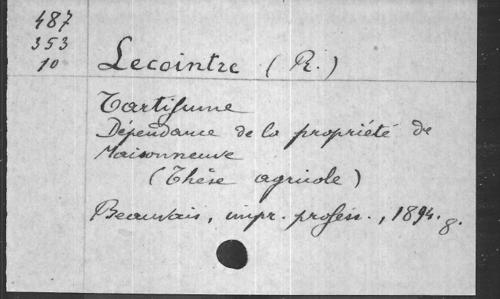 487
353
10
Lecointre (R.)
Tartifume
Dépendance de la propriété de
Maisonneuve
(Thèse agricole)
Beauvais, impr. profess., 1894. 8.